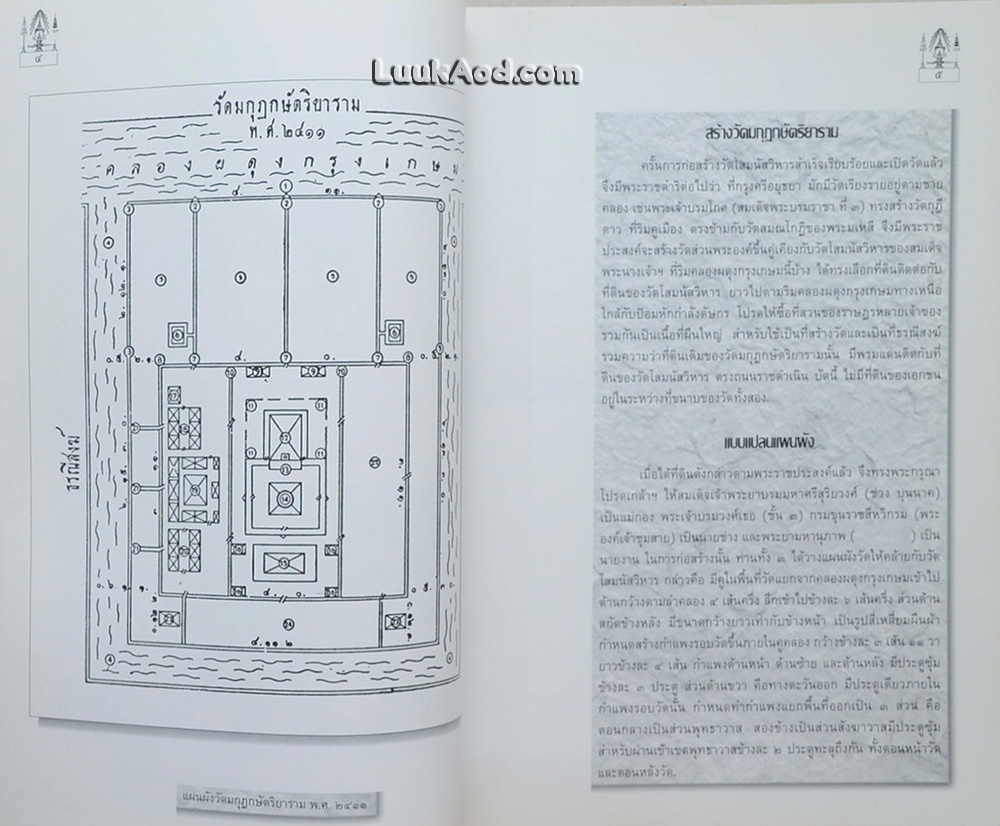 ๔
LuukAod.com
วัดมกุฏกษัตริยาราม
พ.ศ. ๒๔๑๑
คลองผดุงกรุงเกษม
ธรณีสงฆ์
แผนผังวัดมกุฏกษัตริยาราม พ.ศ. ๒๔๑๑
๕
สร้างวัดมกุฎกษัตริยาราม
ครั้นการก่อสร้างวัดโสมนัสวิหารสำเร็จเรียบร้อยและเปิดวัดแล้ว
จึงมีพระราชดำริต่อไปว่า ที่กรุงศรีอยุธยา มักมีวัดเรียงรายอยู่ตามชาย
คลอง เช่นพระเจ้าบรมโกศ (สมเด็จพระบรมราชา ที่ ๓) ทรงสร้างวัดกุฎี
ดาว ที่ริมคูเมือง ตรงข้ามกับวัดสมณโกฎิของพระมเหสี จึงมีพระราช
ประสงค์จะสร้างวัดส่วนพระองค์ขึ้นคู่เคียงกับวัดโสมนัสวิหารของสมเด็จ
พระนางเจ้าฯ ที่ริมคลองผดุงกรุงเกษมนี้บ้าง ได้ทรงเลือกที่ดินติดต่อกับ
ที่ดินของวัดโสมนัสวิหาร ยาวไปตามริมคลองผดุงกรุงเกษมทางเหนือ
ใกล้กับป้อมหักกำลังดัษกร โปรดให้ซื้อที่สวนของราษฎรหลายเจ้าของ
รวมกันเป็นเนื้อที่ผืนใหญ่ สำหรับใช้เป็นที่สร้างวัดและเป็นที่ธรณีสงฆ์
รวมความว่าที่ดินเดิมของวัดมกุฎกษัตริยารามนั้น มีพรมแดนติดกับที่
ดินของวัดโสมนัสวิหาร ตรงถนนราชดำเนิน บัดนี้ ไม่มีที่ดินของเอกชน
อยู่ในระหว่างที่ขนาบของวัดทั้งสอง.
แบบแปลนแผนผัง
เมื่อได้ที่ดินดังกล่าวตามพระราชประสงค์แล้ว จึงทรงพระกรุณา
โปรดเกล้าฯ ให้สมเด็จเจ้าพระยาบรมมหาศรีสุริยวงศ์ (ช่วง บุนนาค)
เป็นแม่กอง พระเจ้าบรมวงศ์เธอ (ชั้น ๓) กรมขุนราชสีหวิกรม (พระ
องค์เจ้าชุมสาย) เป็นนายช่าง และพระยามหานุภาพ ( ) เป็น
นายงาน ในการก่อสร้างนั้น ท่านทั้ง ๓ ได้วางแผนผังวัดให้คล้ายกับวัด
โสมนัสวิหาร กล่าวคือ มีคูในพื้นที่วัดแยกจากคลองผดุงกรุงเกษมเข้าไป
ด้านกว้างตามลำคลอง ๔ เส้นครึ่ง ลึกเข้าไปข้างละ ๖ เส้นครึ่ง ส่วนด้าน
สกัดข้างหลัง มีขนาดกว้างยาวเท่ากับข้างหน้า เป็นรูปสี่เหลี่ยมผืนผ้า
กำหนดสร้างกำแพงรอบวัดขึ้นภายในคูคลอง กว้างข้างละ ๓ เส้น ๑๑ วา
ยาวข้างละ ๔ เส้น กำแพงด้านหน้า ด้านซ้าย และด้านหลัง มีประตูซุ้ม
ข้างละ ๓ ประตู ส่วนด้านขวา คือทางตะวันออก มีประตูเดียวภายใน
กำแพงรอบวัดนั้น กำหนดทำกำแพงแยกพื้นที่ออกเป็น ๓ ส่วน คือ
ตอนกลางเป็นส่วนพุทธาวาส สองข้างเป็นส่วนสังฆาวาสมีประตูซุ้ม
สำหรับผ่านเข้าเขตพุทธาวาสข้างละ ๒ ประตูทะลุถึงกัน ทั้งตอนหน้าวัด
และตอนหลังวัด.